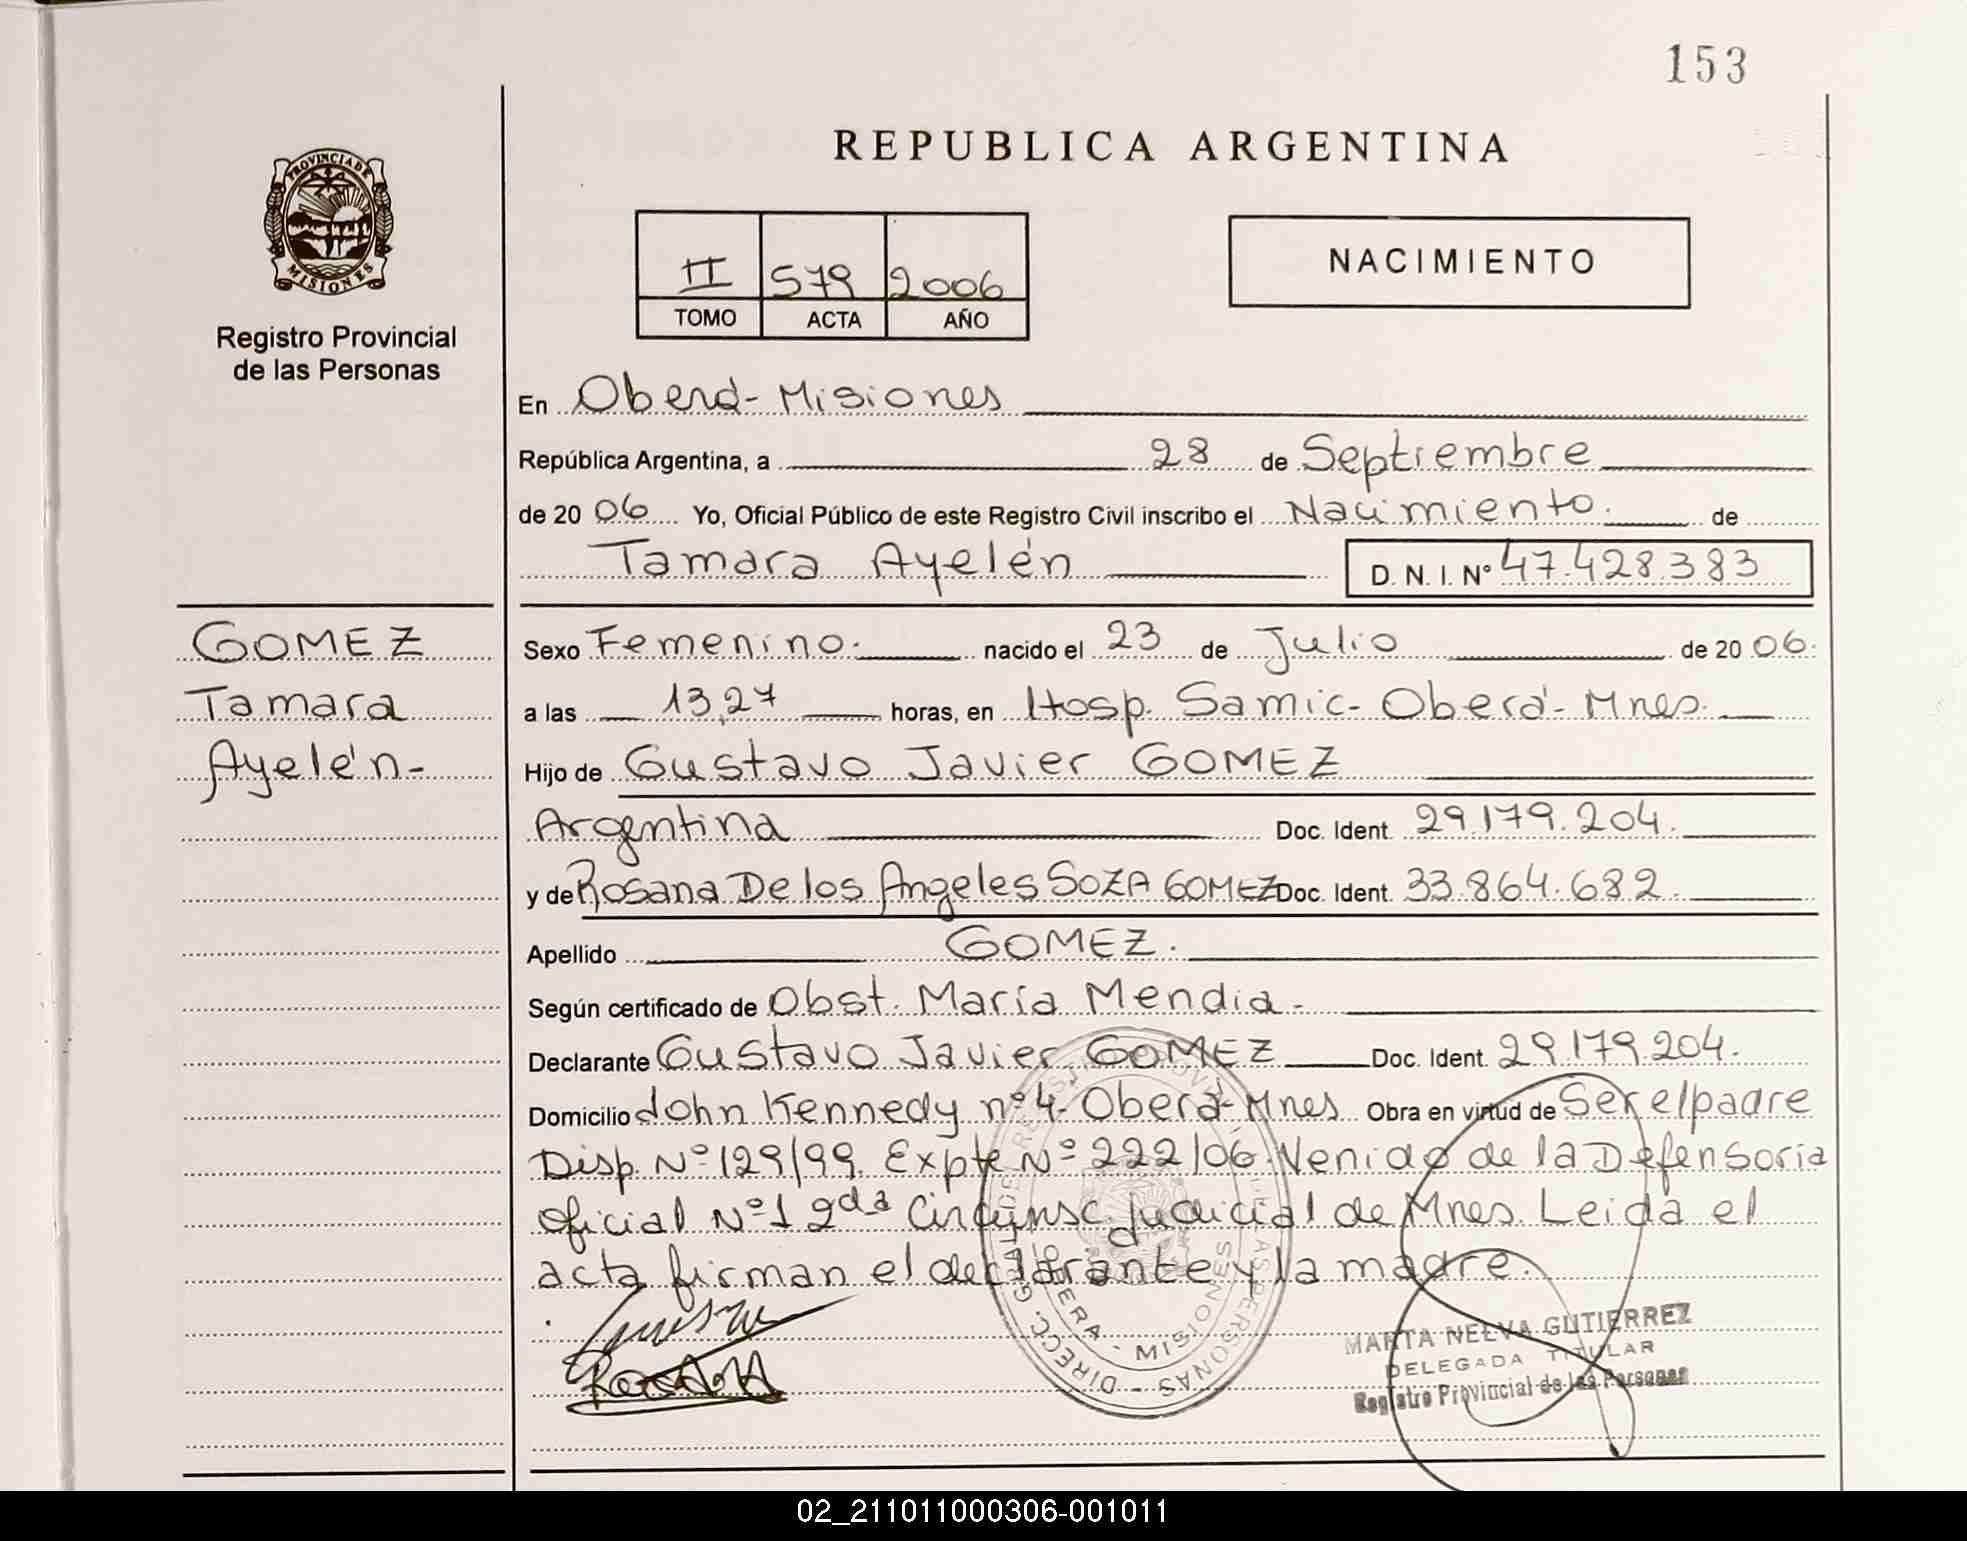 153
PROVINCIA DE
MISIONES
Registro Provincial
de las Personas
REPUBLICA ARGENTINA
II 579 2006
TOMO ACTA AÑO
NACIMIENTO
En Oberá - Misiones
República Argentina, a 28 de Septiembre
de 20 06 Yo, Oficial Público de este Registro Civil inscribo el Nacimiento. de
Tamara Ayelén D. N. I. Nº 47.428.383
GOMEZ
Tamara
Ayelén-
Sexo Femenino. nacido el 23 de Julio de 20 06.
a las 13,27 horas, en Hosp. Samic- Oberá- Mnes.
Hijo de Gustavo Javier GOMEZ
Argentina Doc. Ident. 29.179.204.
y de Rosana De los Angeles SOZA GOMEZ Doc. Ident. 33.864.682.
Apellido GOMEZ.
Según certificado de Obst. María Mendia -
Declarante Gustavo Javier GOMEZ Doc. Ident. 29.179.204.
Domicilio John Kennedy nº 4- Oberá- Mnes Obra en virtud de Ser el padre
Disp. Nº 129/99. Expte Nº 222/06. Venido de la Defensoria
Oficial Nº 1 2da Circunsc. Judicial de Mnes. Leida el
acta firman el declarante y la madre.
MARTA NELVA GUTIERREZ
DELEGADA TITULAR
Registro Provincial de las Personas
02_211011000306-001011